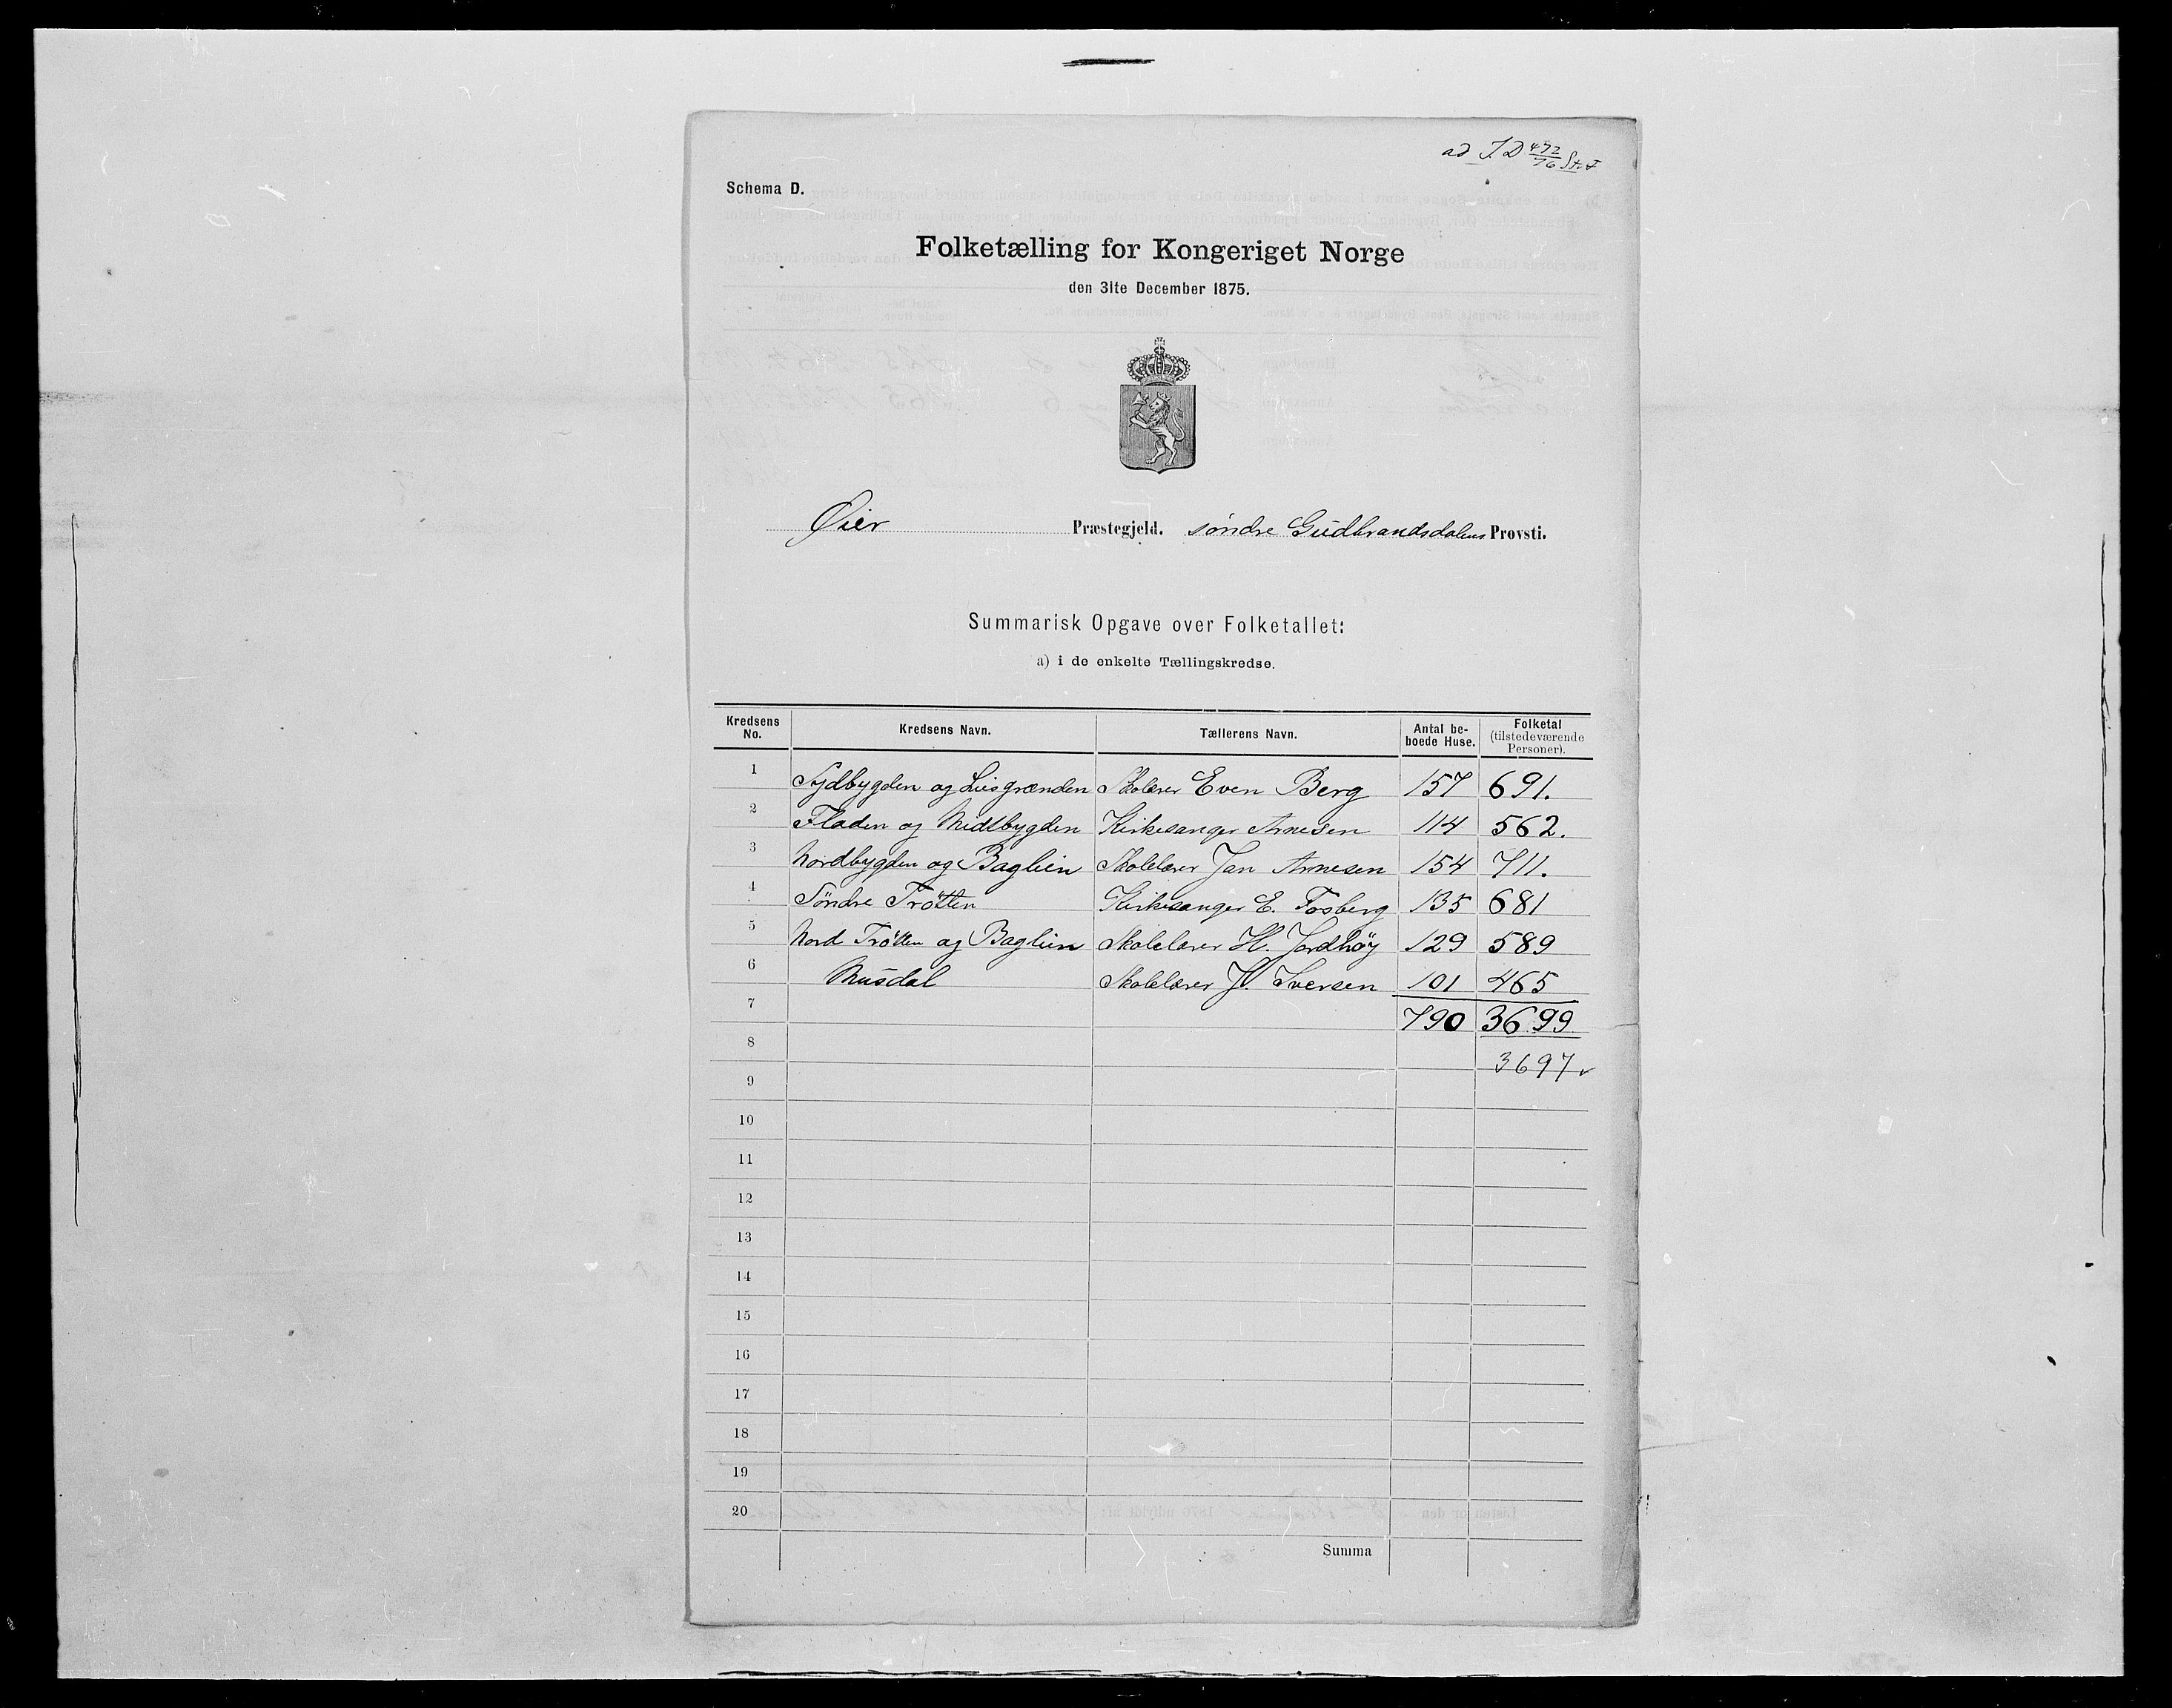 ad I D 492/76 St. I
Schema D.
Folketælling for Kongeriget Norge
den 31te December 1875.
Øier Præstegjeld. søndre Gudbrandsdalens Provsti.
Summarisk Opgave over Folketallet:
a) i de enkelte Tællingskredse.
Kredsens No. Kredsens Navn. Tællerens Navn. Antal beboede Huse. Folketal (tilstedeværende Personer).
1 Sydbygden og Liesgrænden Skolelærer Even Berg 157 691.
2 Fladen og Midtbygden Kirkesanger Arnesen 114 562.
3 Nordbygden og Baglien Skolelærer Jan Arnesen 154 711.
4 Søndre Trötten Kirkesanger E. Fosberg 135 681
5 Nord Trötten og Baglien Skolelærer H. Jordhøy 129 589
6 Musdal Skolelærer J. Iversen 101 465
7 790 3699
8 3697
9
10
11
12
13
14
15
16
17
18
19
20
Summa